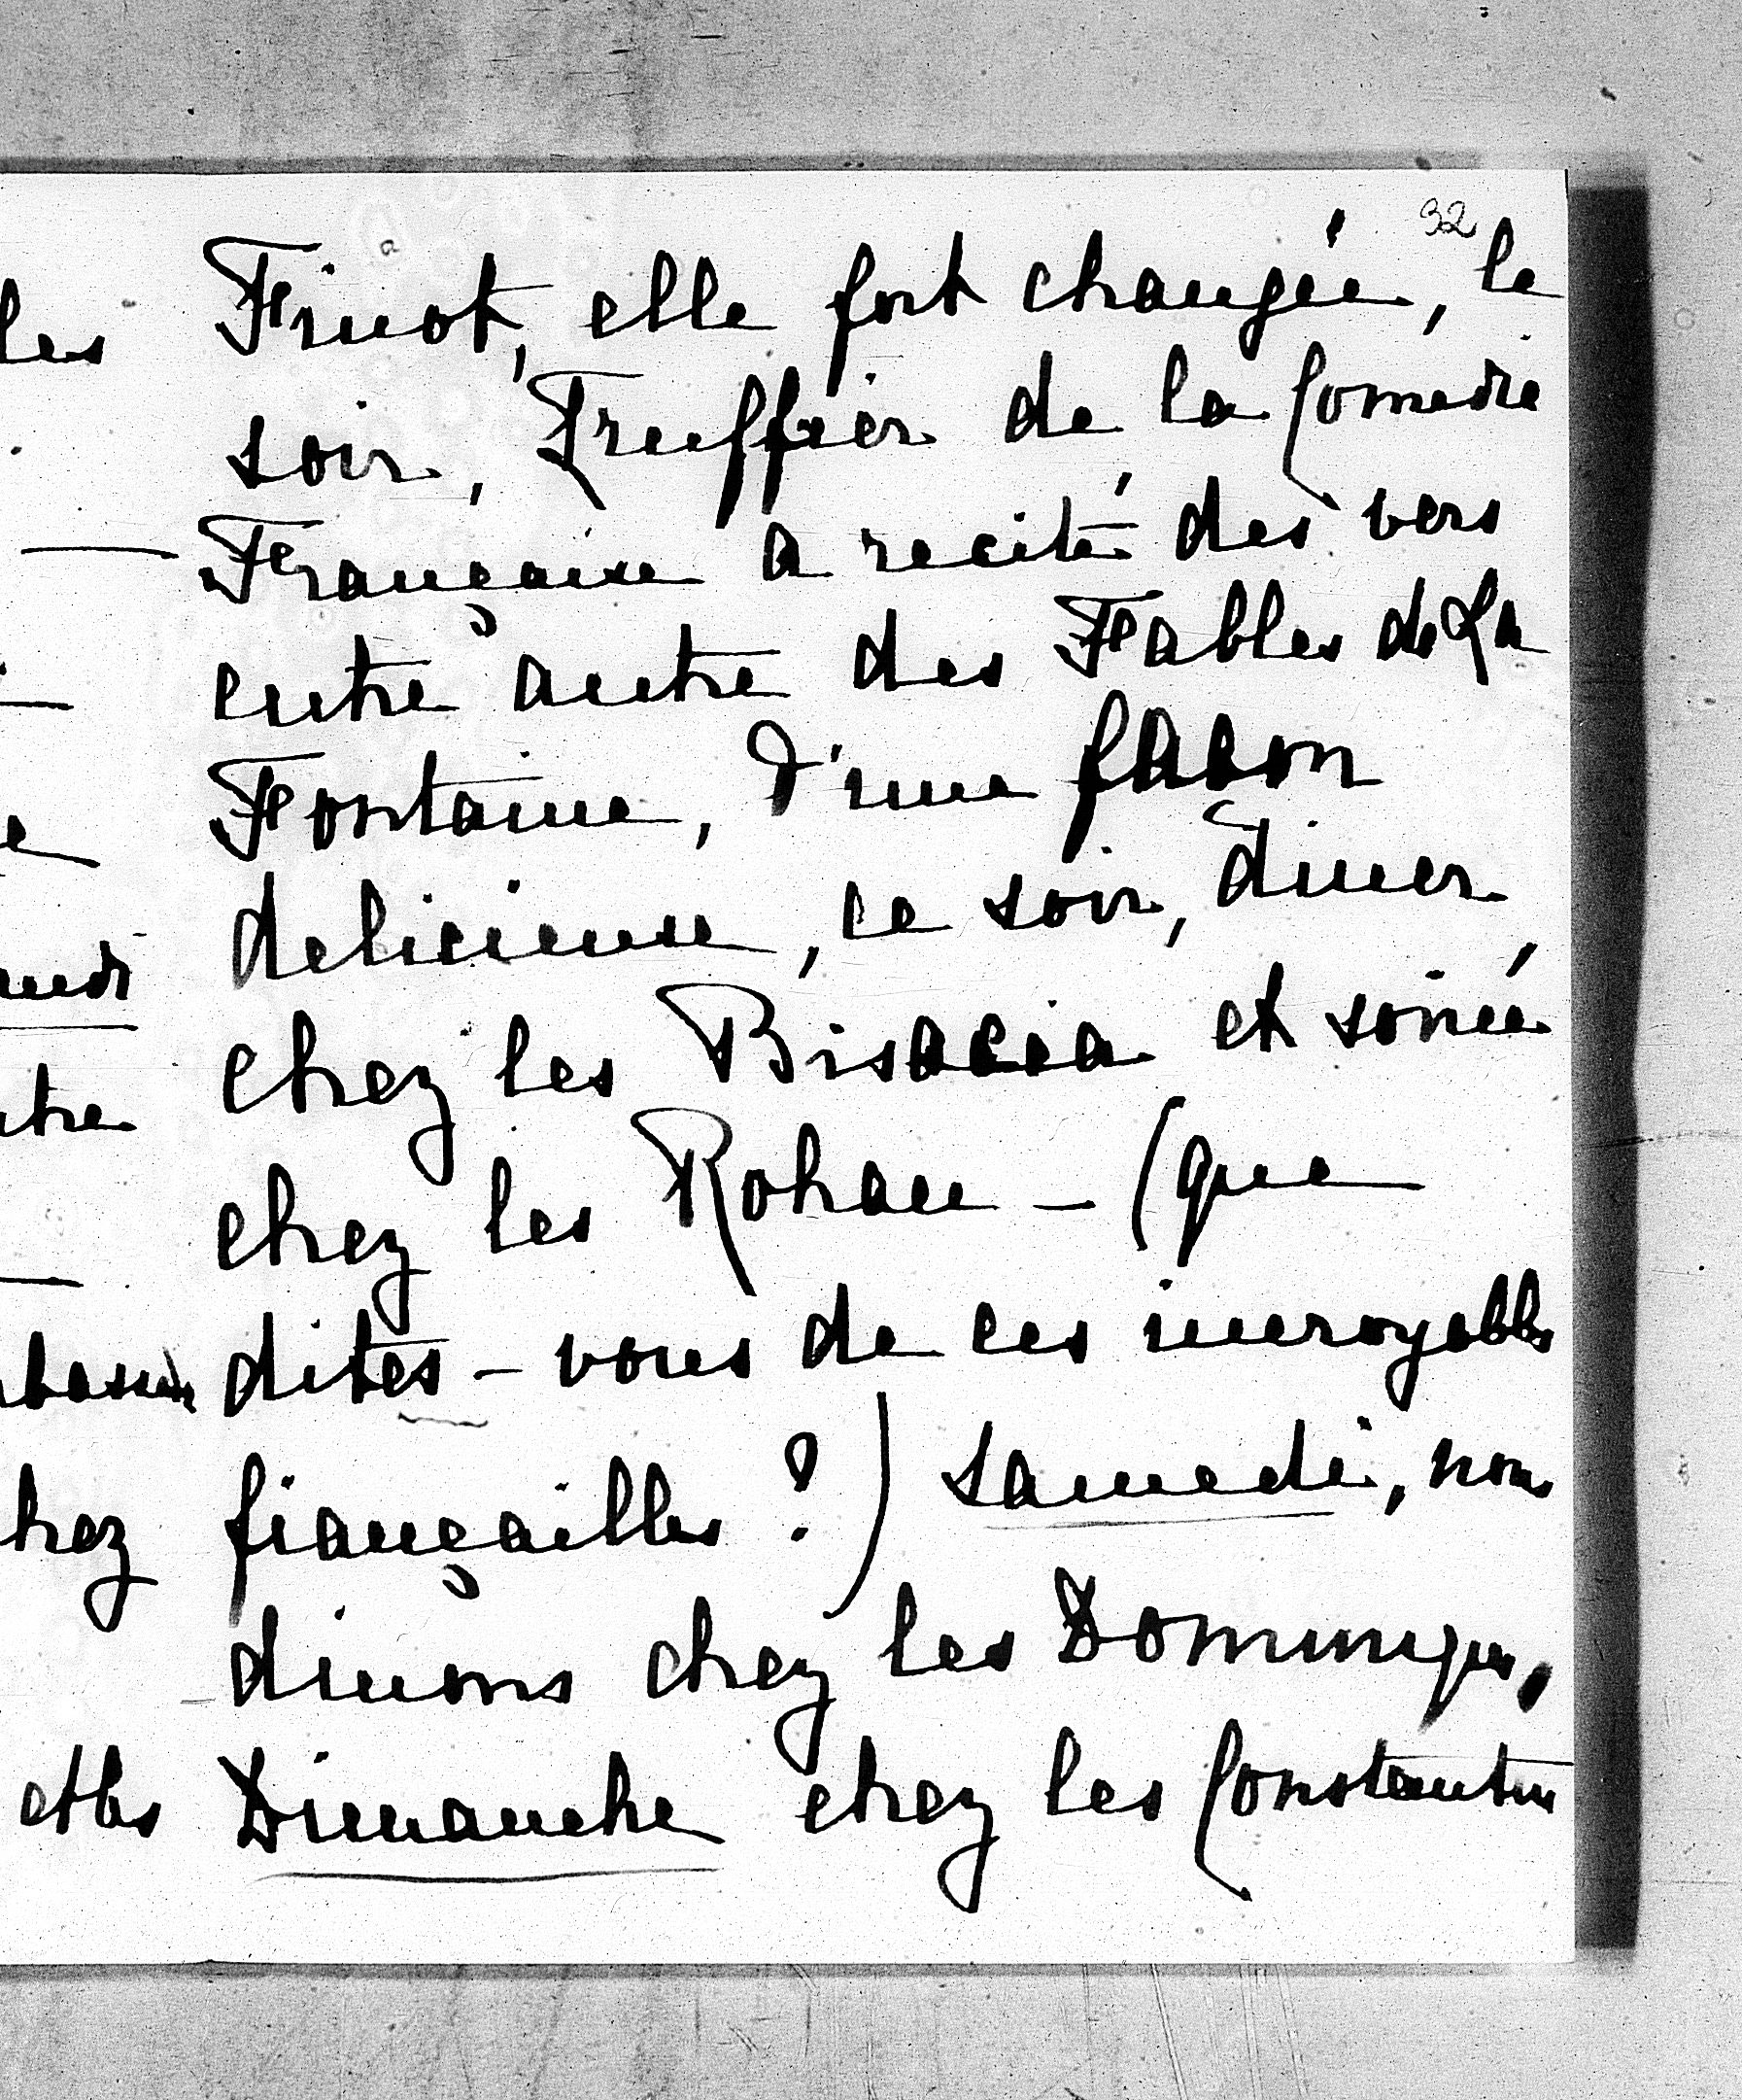 32
les Finot, elle fort changée, le
soir, Truffier de la Comedie
Française a recité des vers
entre autre des Fables de La
Fontaine, d'une façon
delicieuse, ce soir, diner,
chez les Bisaccia et soirée
tre chez les Rohan - (que
dites-vous de ces incroyables
hez fiançailles ?) Samedi, nous
dinons chez les Dominique,
et les Dimanche chez les Constantin